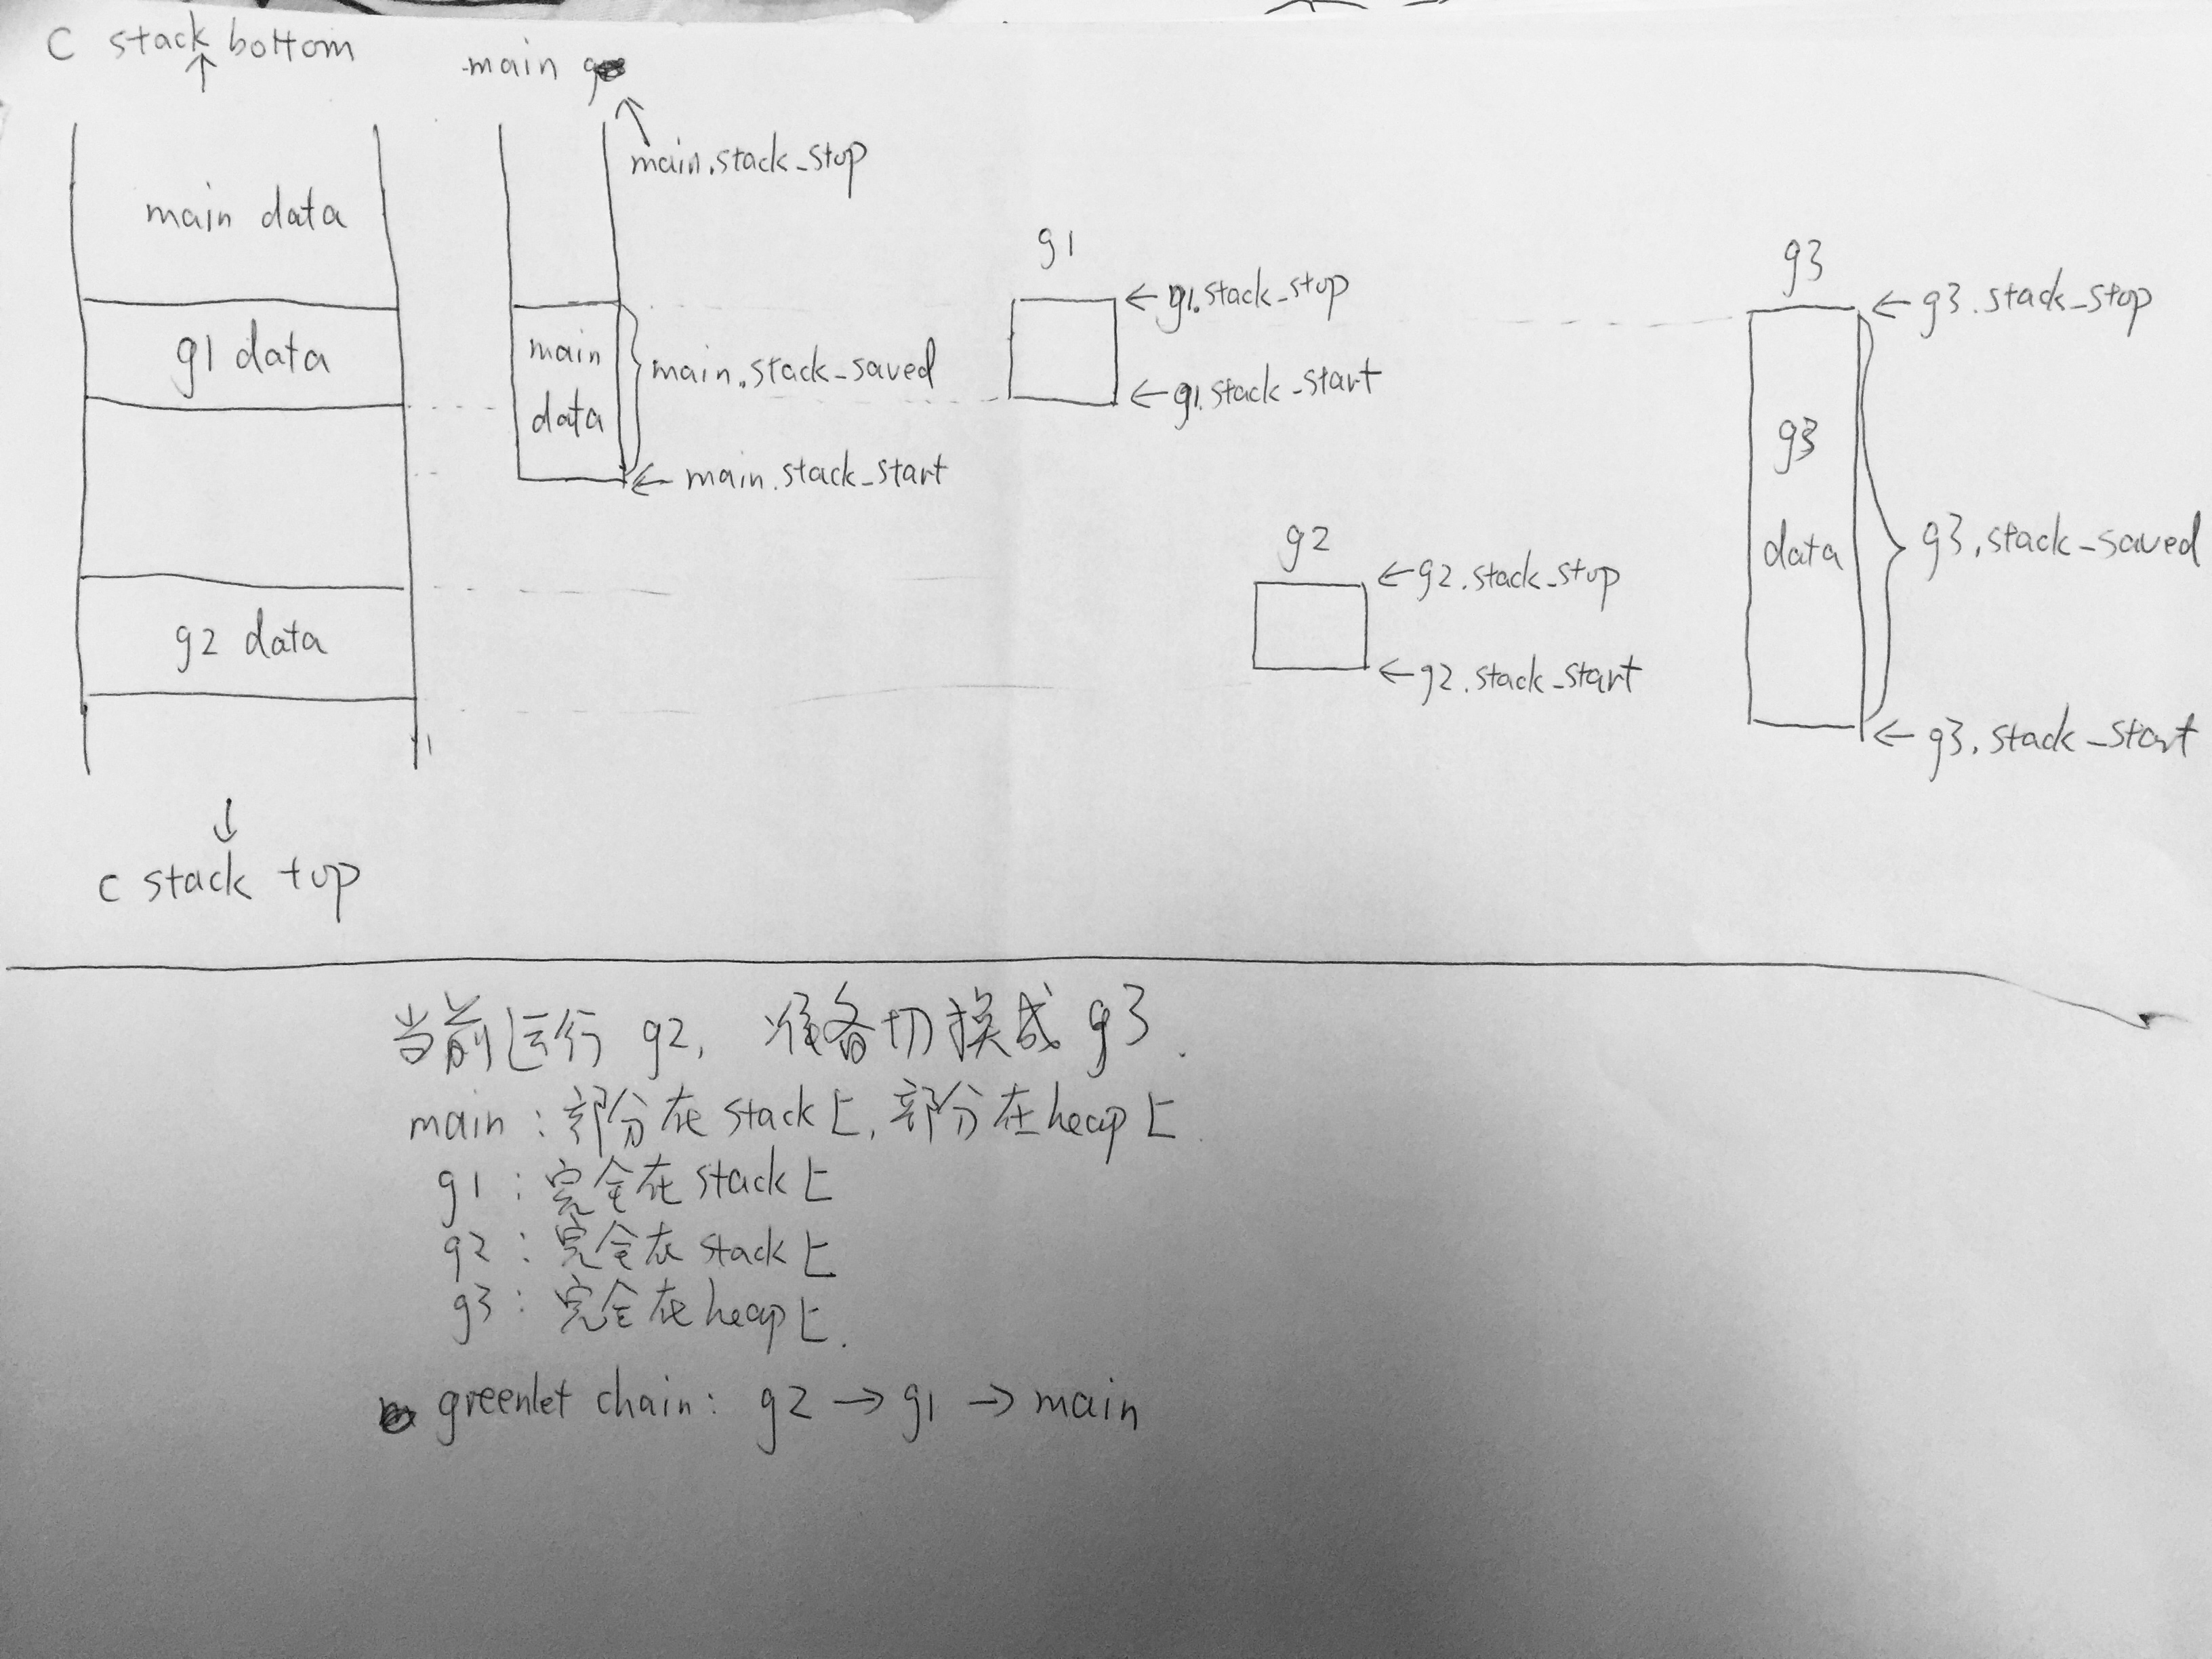 C stack bottom
main
main.stack_stop
main data
g1 data
g2 data
c stack top
main
data
main.stack_saved
main.stack_start
g1
g1.stack_stop
g1.stack_start
g2
g2.stack_stop
g2.stack_start
g3
g3.stack_stop
g3
data
g3.stack_saved
g3.stack_start
当前运行 g2, 准备切换成 g3.
main : 部分在 stack 上, 部分在 heap 上.
g1 : 完全在 stack 上
g2 : 完全在 stack 上
g3 : 完全在 heap 上.
greenlet chain: g2 → g1 → main